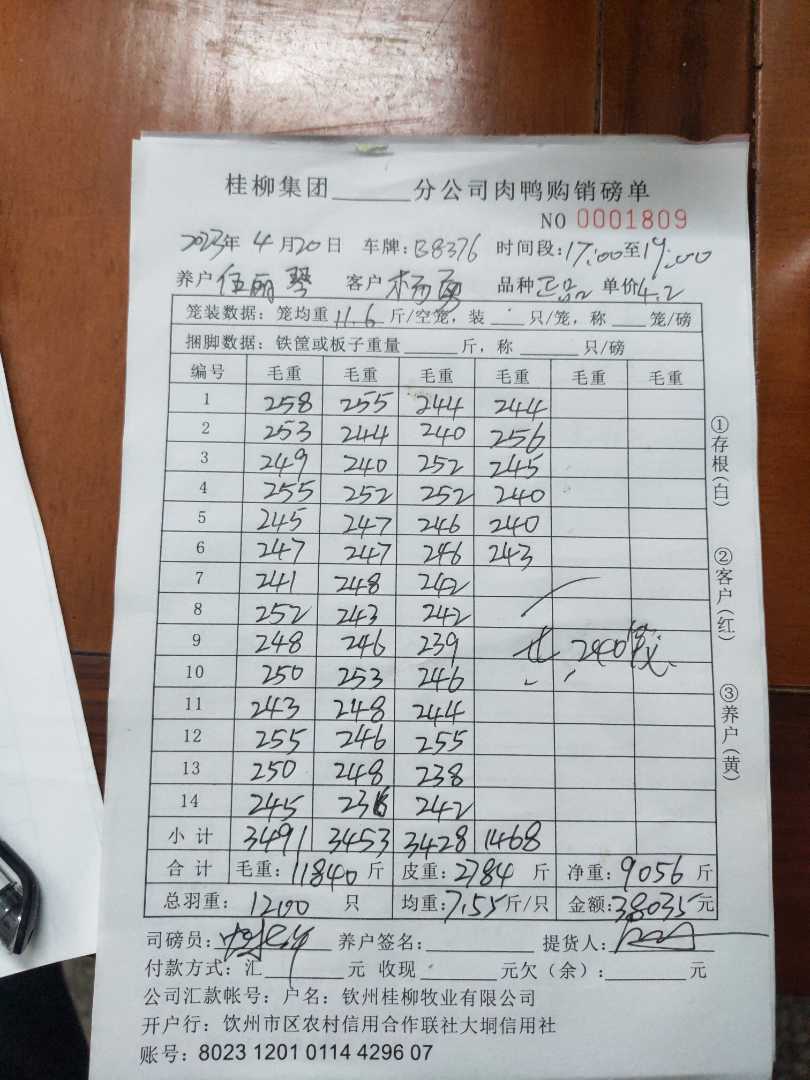 桂柳集团______分公司肉鸭购销磅单
NO 0001809
2023年 4月20日 车牌:B8376 时间段:17:00至19:00
养户 伍丽琴 客户 杨勇 品种 正品 单价4.2
笼装数据:笼均重 11.6 斤/空笼,装___只/笼,称___笼/磅
捆脚数据:铁筐或板子重量______斤,称______只/磅
编号 毛重 毛重 毛重 毛重 毛重 毛重
1 258 255 244 244
2 253 244 240 256
3 249 240 252 245
4 255 252 252 240
5 245 247 246 240
6 247 247 246 243
7 241 248 242
8 252 243 242
9 248 246 239 240
10 250 253 246
11 243 248 244
12 255 246 255
13 250 248 238
14 245 236 242
小计 3491 3453 3428 1468
合计 毛重:11840斤 皮重:2784斤 净重:9056斤
总羽重:1200只 均重:7.55斤/只 金额:38035元
司磅员: 养户签名: 提货人:
付款方式:汇______元 收现______元欠(余):______元
公司汇款帐号:户名:钦州桂柳牧业有限公司
开户行:饮州市区农村信用合作联社大垌信用社
账号:8023 1201 0114 4296 07
①存根(白)
②客户(红)
③养户(黄)